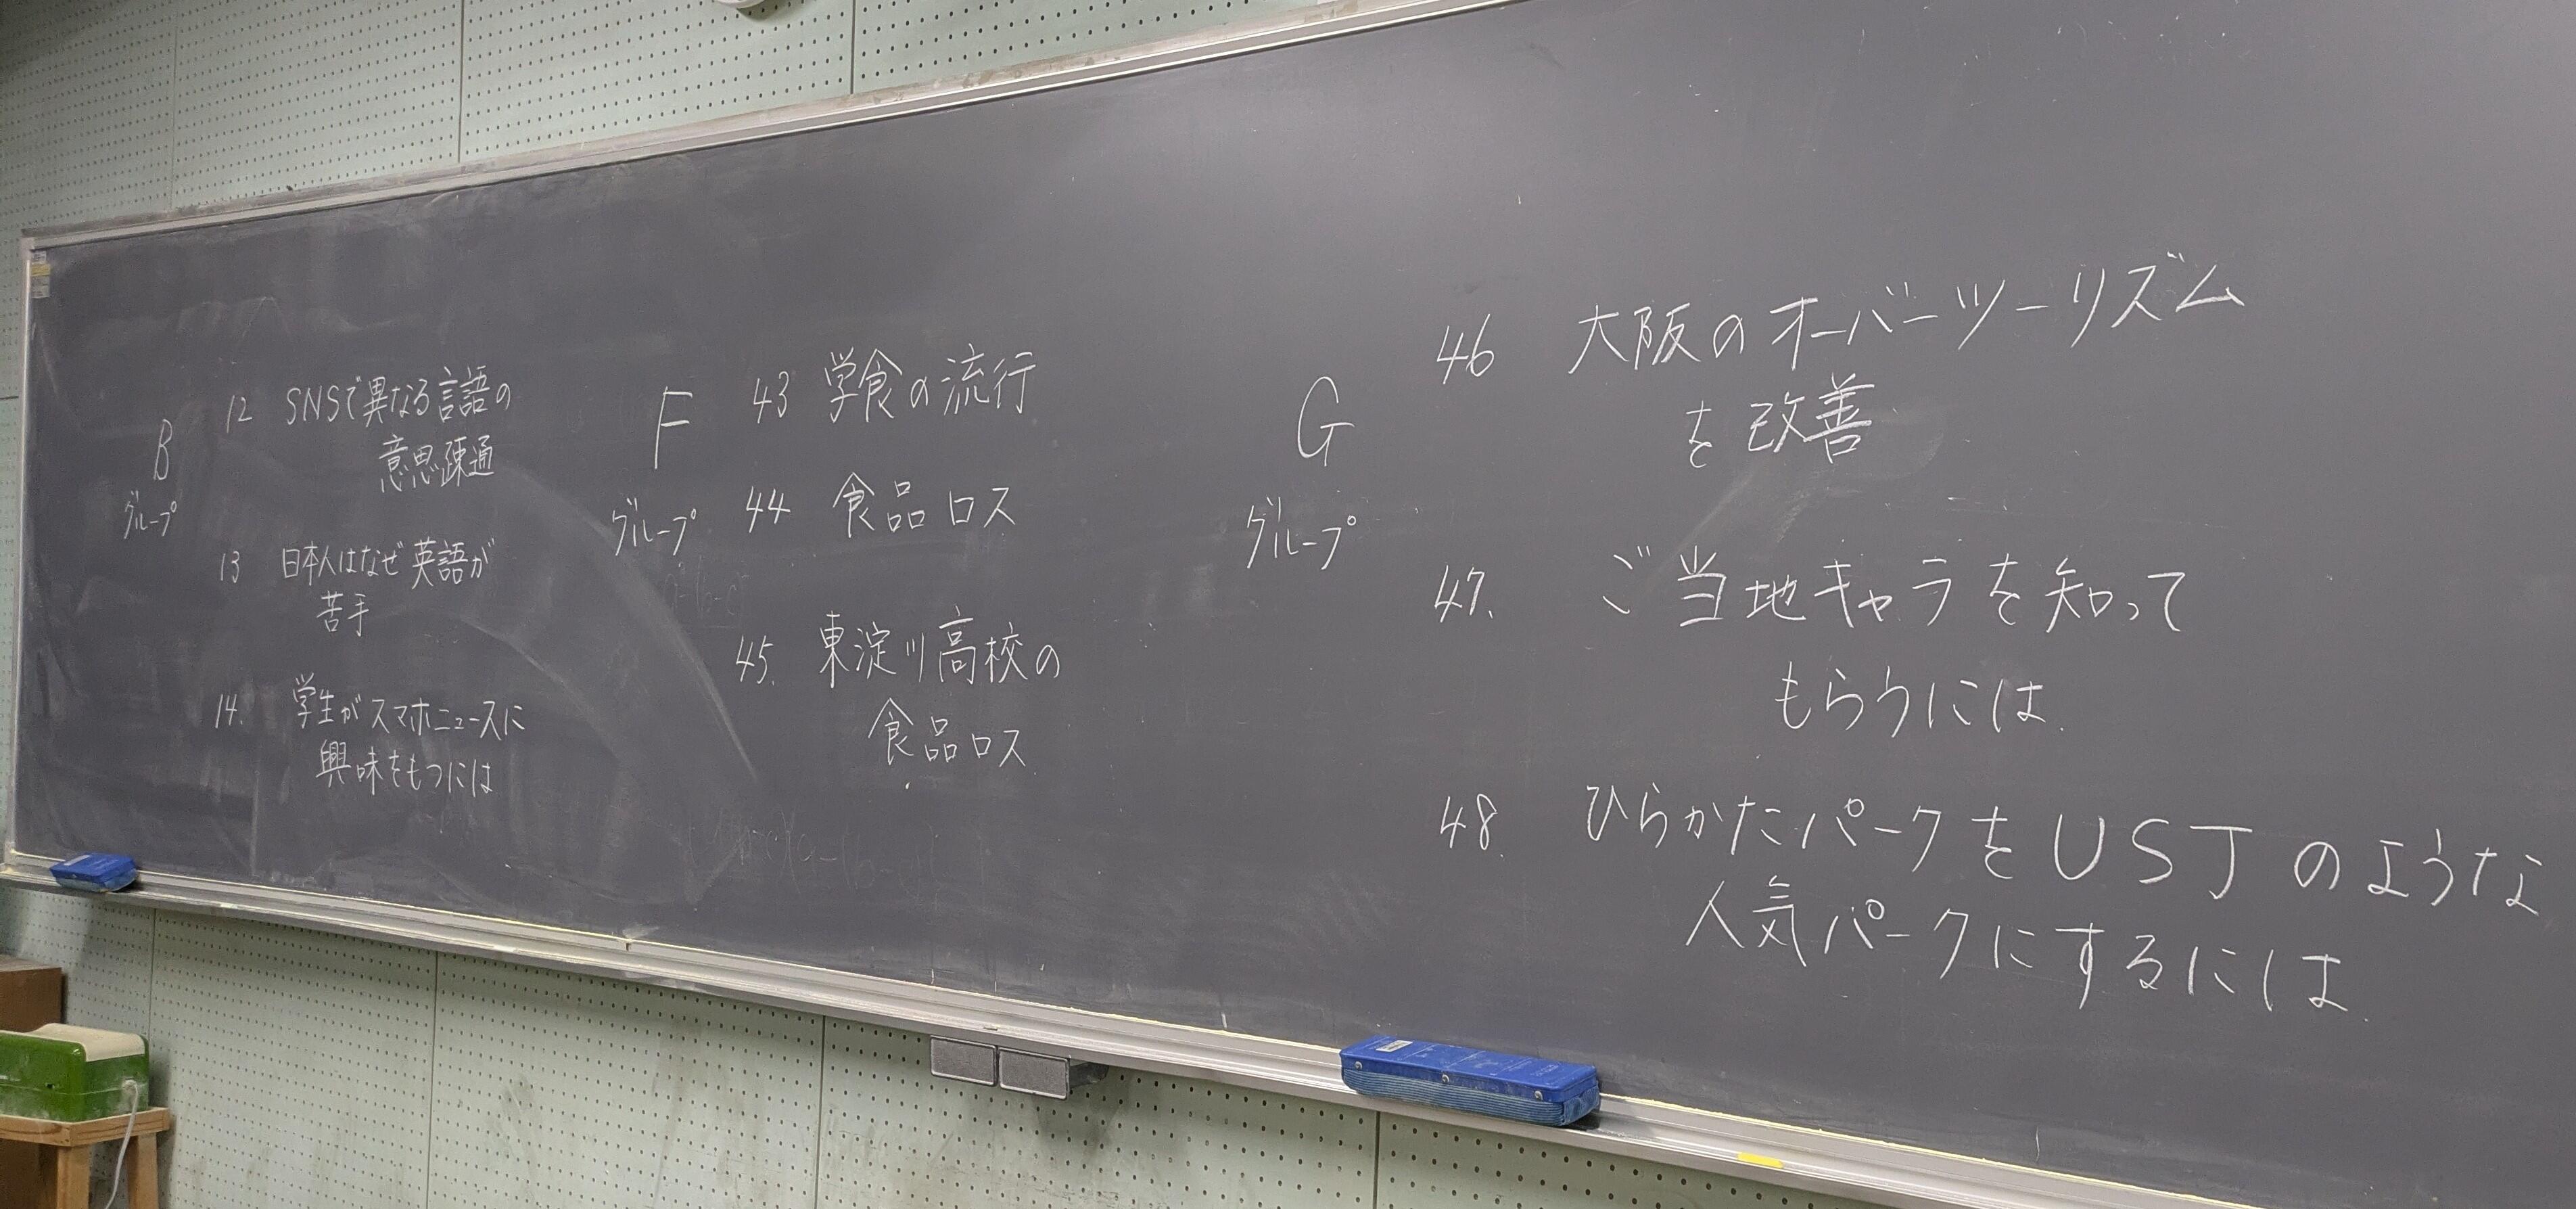 B
グループ
12 SNSで異なる言語の
意思疎通
13 日本人はなぜ英語が
苦手
14. 学生がスマホニュースに
興味をもつには
F
グループ
43 学食の流行
44 食品ロス
45. 東淀川高校の
食品ロス
G
グループ
46 大阪のオーバーツーリズム
を改善
47. ご当地キャラを知って
もらうには
48. ひらかたパークをUSJのような
人気パークにするには